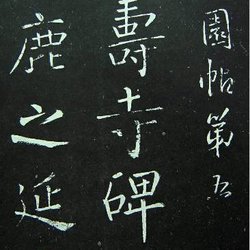 園帖第五
壽寺碑
鹿之延